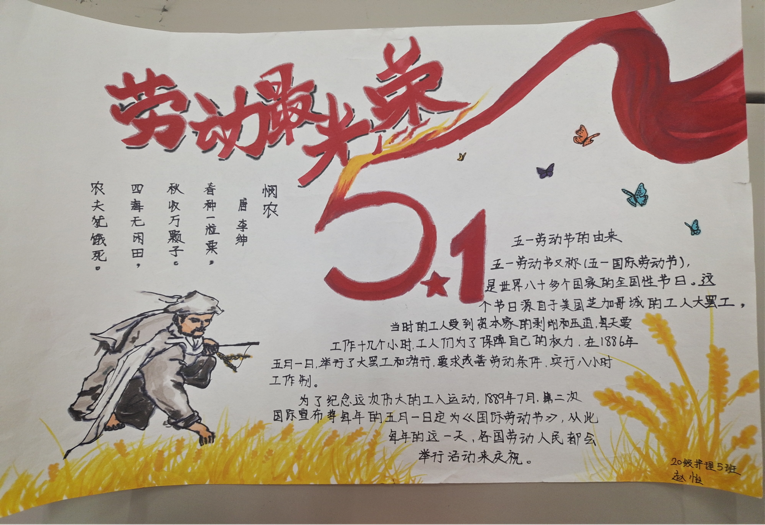 劳动最光荣
5.1
悯农
唐 李绅
春种一粒粟。
秋收万颗子。
四海无闲田,
农夫犹饿死。
五一劳动节的由来
五一劳动节又称(五一国际劳动节),
是世界八十多个国家的全国性节日。这
个节日源自于美国芝加哥城的工人大罢工。
当时的工人受到资本家的剥削和压迫,每天要
工作十几个小时,工人们为了保障自己的权力,在1886年
五月一日,举行了大罢工和游行,要求改善劳动条件,实行八小时
工作制。
为了纪念这次伟大的工人运动,1889年7月,第二次
国际宣布将每年的五月一日定为《国际劳动节》,从此
每年的这一天,各国劳动人民都会
举行活动来庆祝。
20级 5班
赵